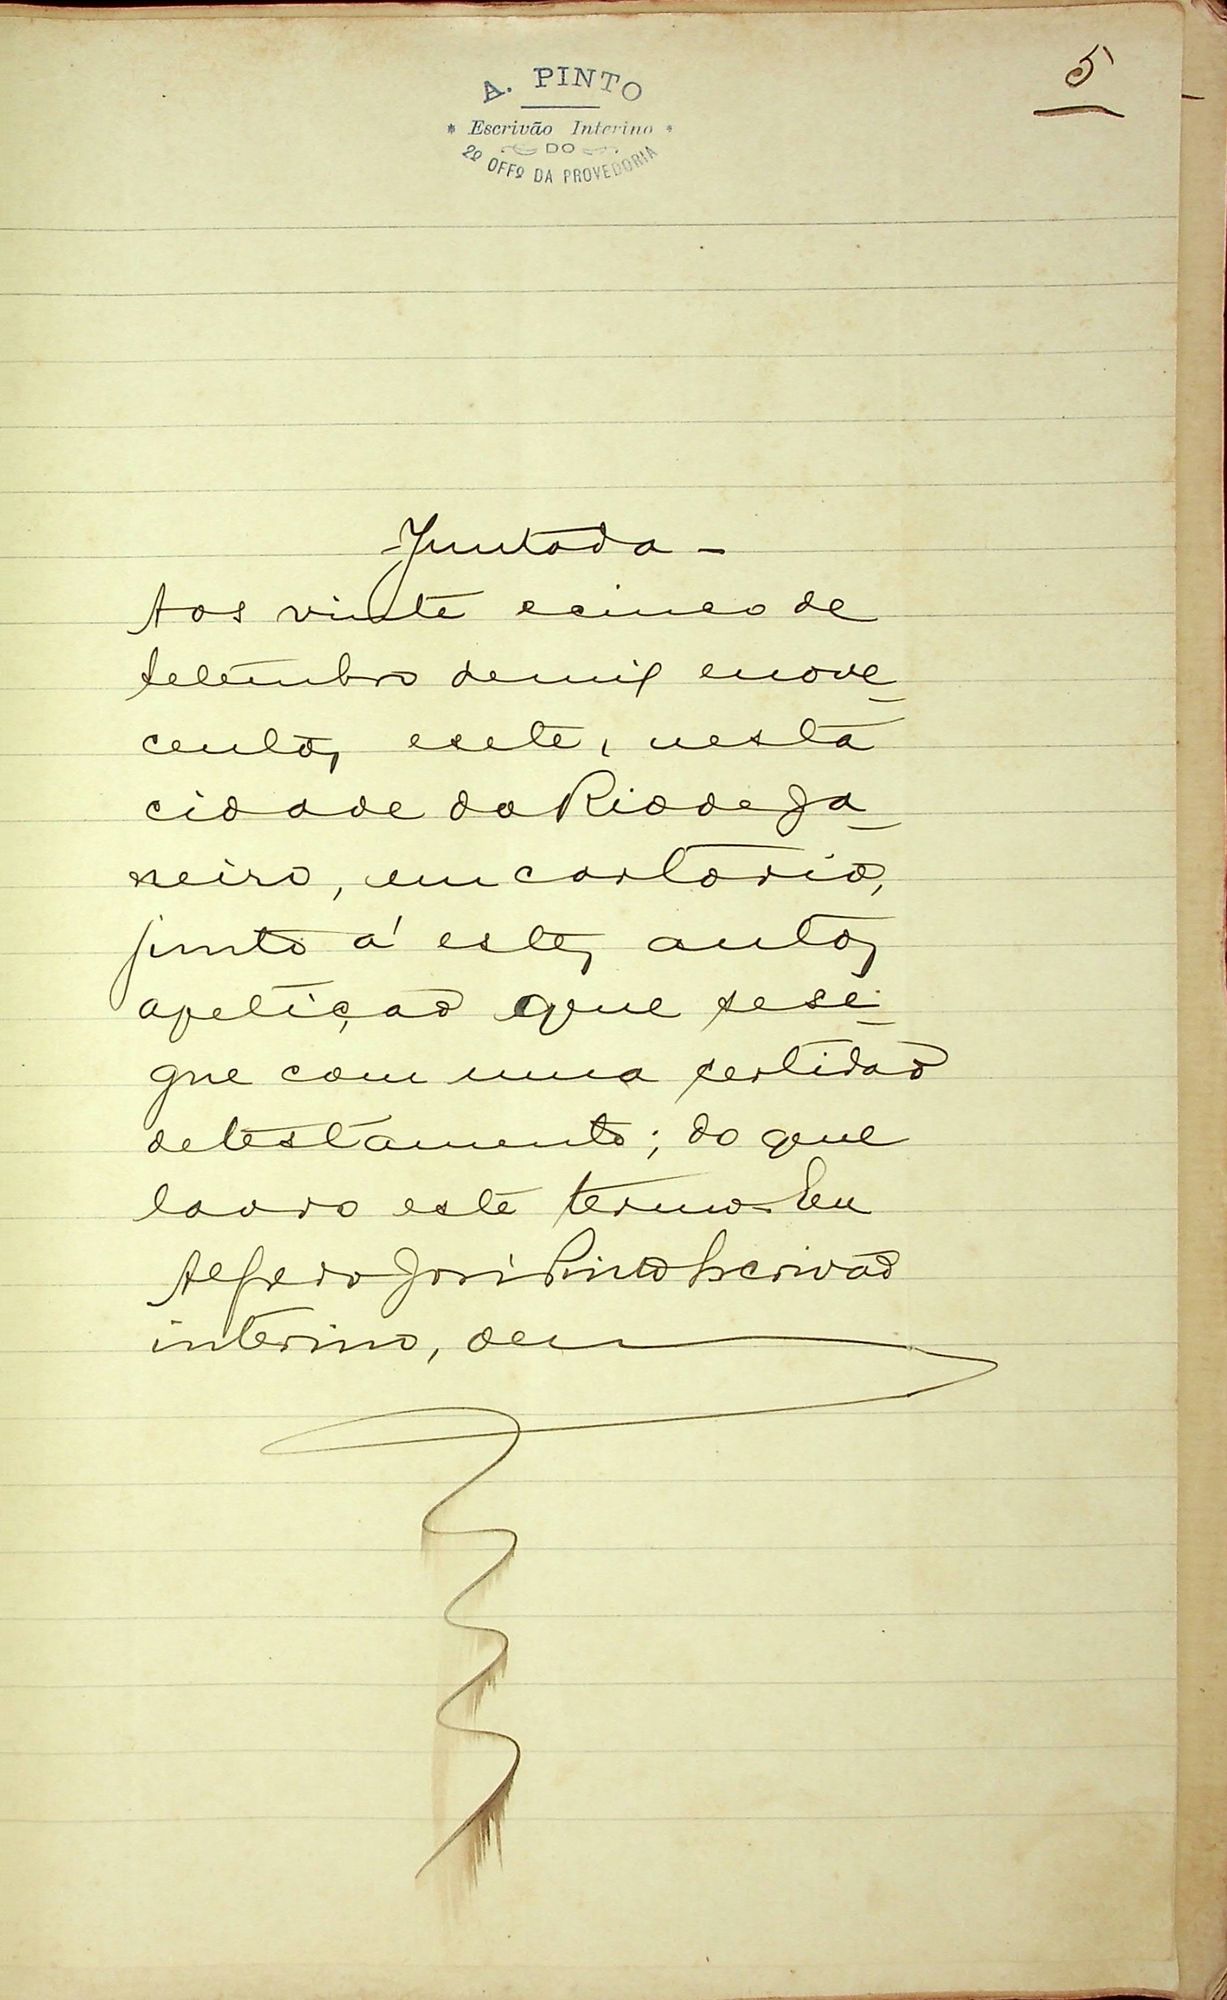 5
A. PINTO
* Escrivão Interino *
DO
2º OFFº DA PROVEDORIA
- Juntada -
Aos vinte e cinco de
Setembro de mil e nove_
centos e sete, nesta
cidade do Rio de Ja_
neiro, em cartorio,
junto á estes autos
a petição que se se_
gue com uma certidão
de testamento; do que
lavro este termo. Eu
Alfredo José Pinto Escrivão
interino,